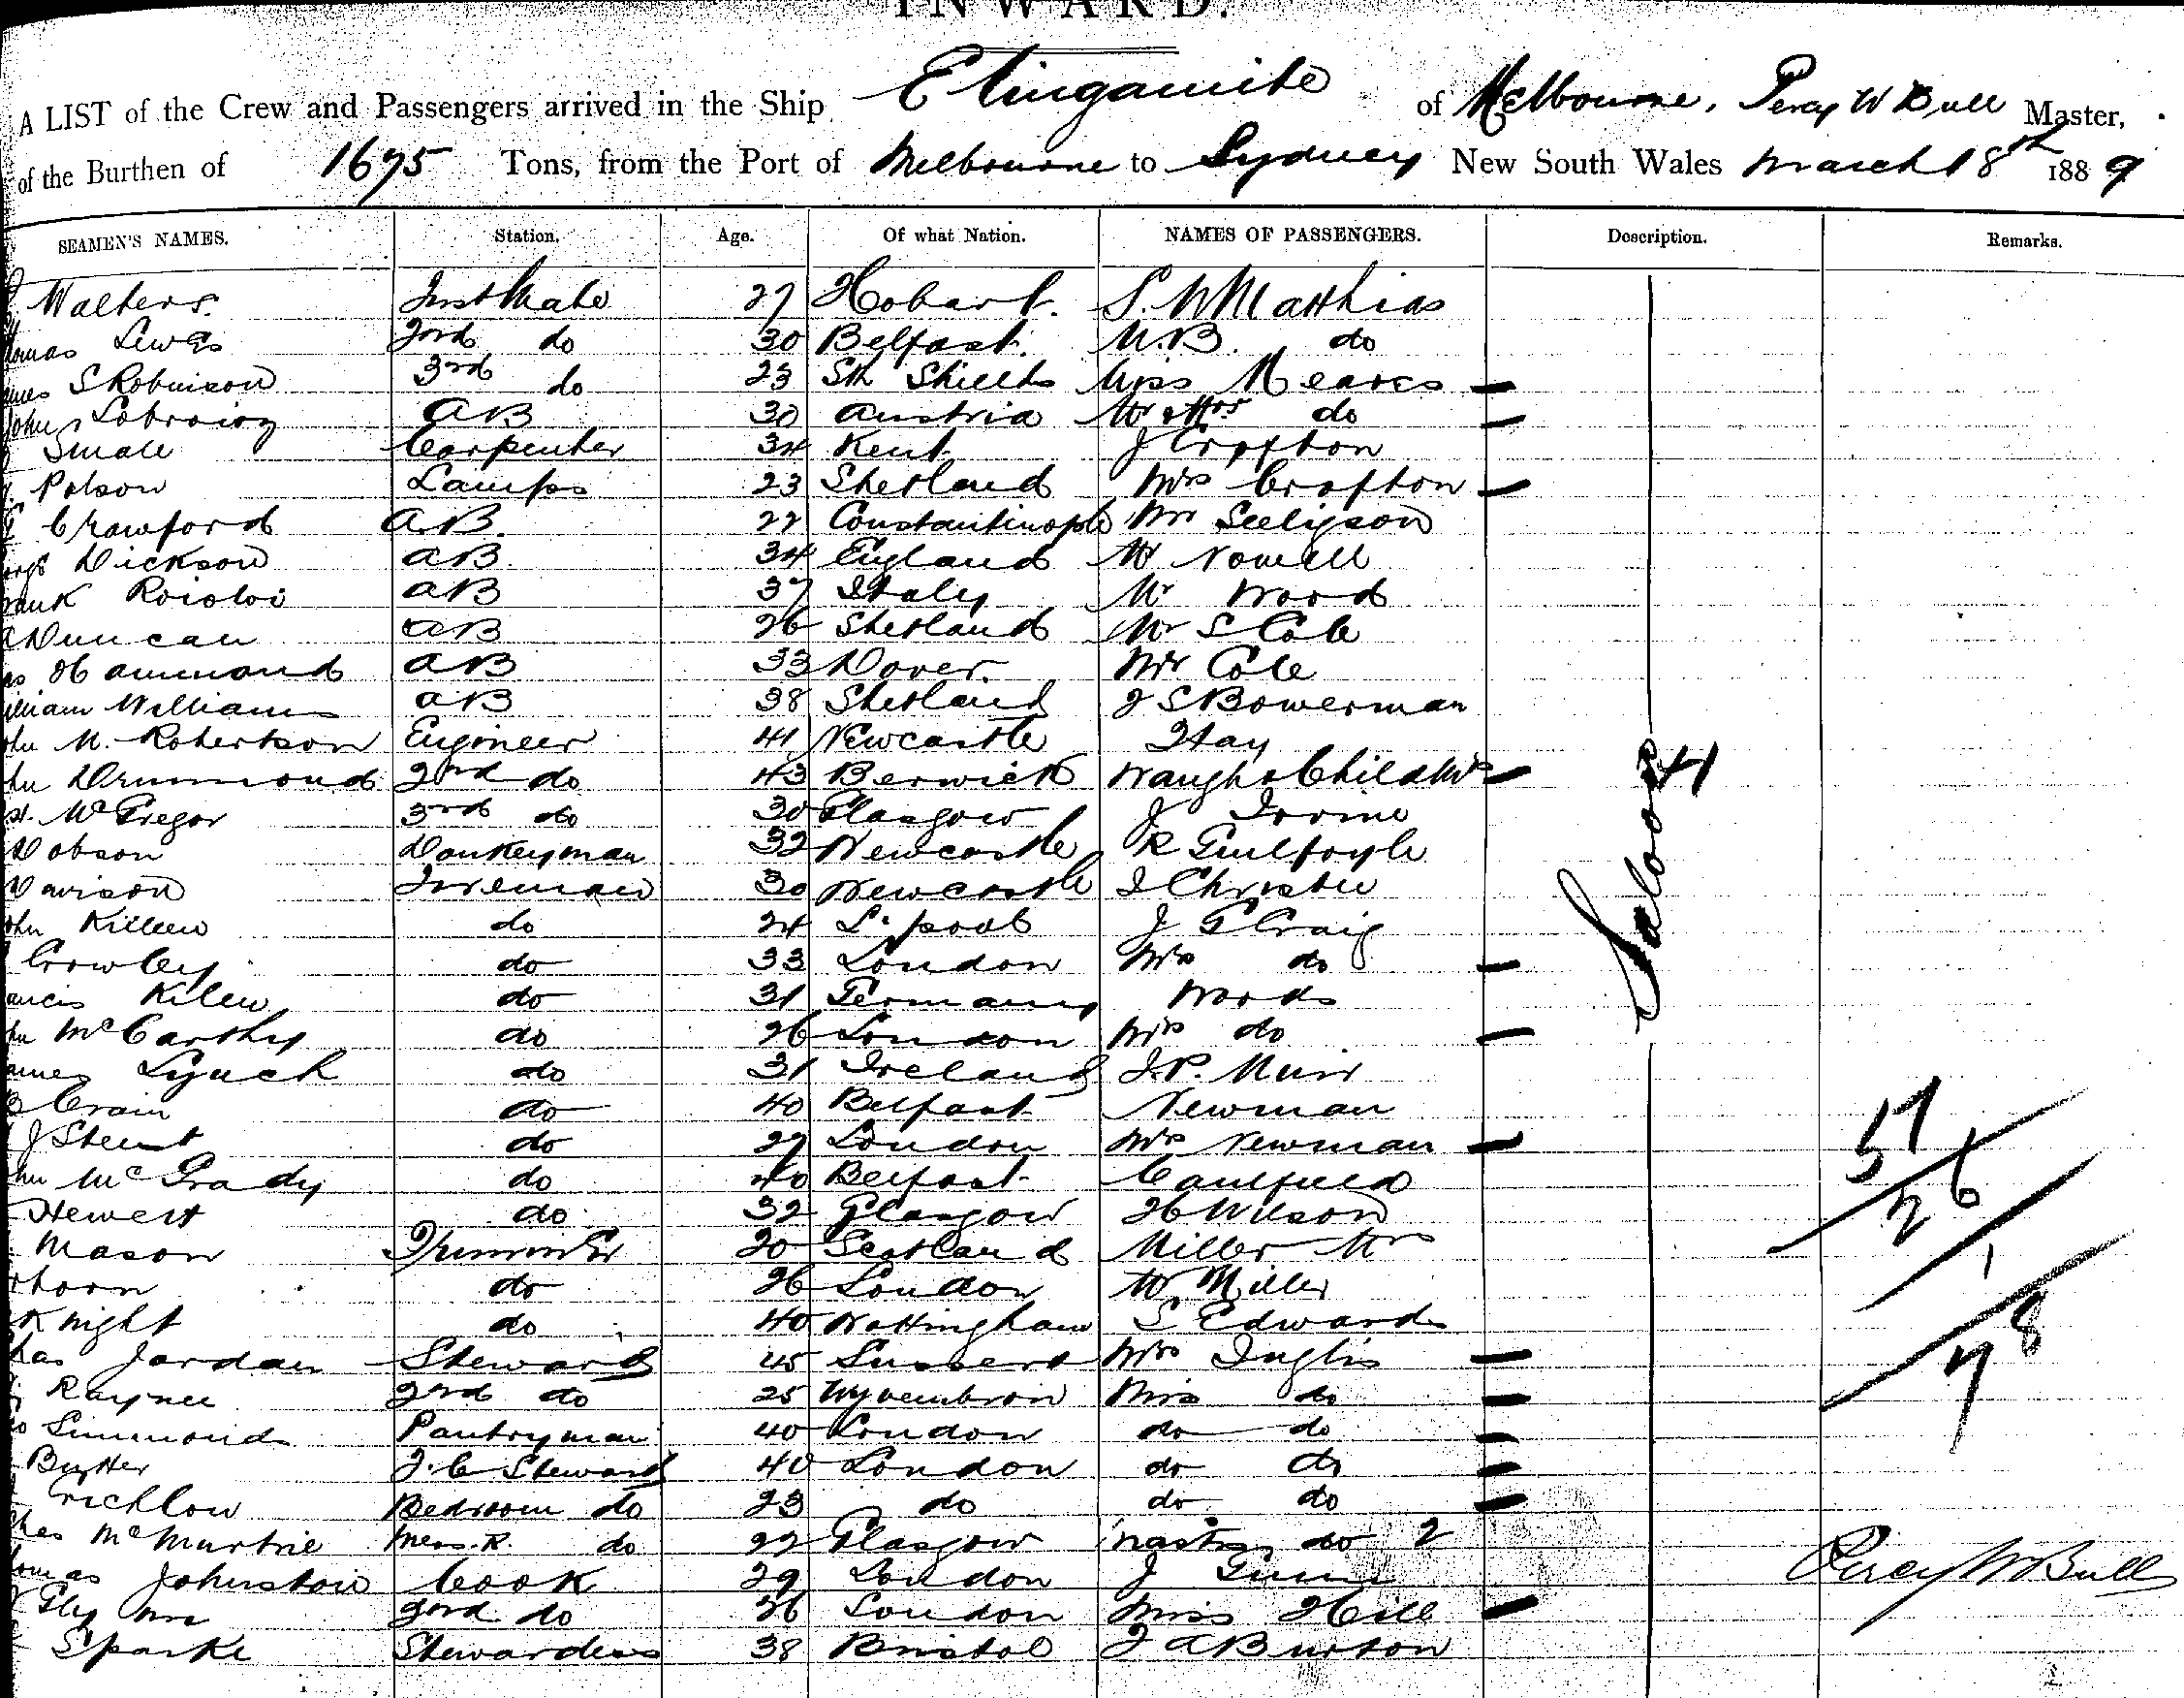 INWARD.
A LIST of the Crew and Passengers arrived in the Ship Elingamite of Melbourne, Percy W Bull Master,
of the Burthen of 1675 Tons, from the Port of Melbourne to Sydney New South Wales March 18th 1889
SEAMEN'S NAMES. Station. Age. Of what Nation. NAMES OF PASSENGERS. Description. Remarks.
Walters. First Mate 27 Hobart. S. W Matthias
Lewis 2nd do 30 Belfast. M.B. do
S Robinson 3rd do 23 Sth Shields Miss Meares
John AB 30 Austria Mr & Mrs do
Small Carpenter 34 Kent J Crofton
Polson Lamps 23 Shetland Mrs Crofton
Crawford A.B. 22 Constantinople Mr Seeligson
Dickson AB 34 England Mr Nowell
AB 37 Italy Mr Wood
Duncan AB 26 Shetland Mr S Cole
Hammond AB 33 Dover. Mr Cole
William Williams AB 38 Shetland J S Bowerman
M. Robertson Engineer 41 Newcastle Hay
Drummond 2nd do 43 Berwick Waugh & Child Mrs
McGregor 3rd do 30 Glasgow J Irvine
Dobson Donkeyman 32 Newcastle R Guilfoyle
Davison Fireman 30 Newcastle J Christie
John Killen do 24 L'pool J G Craig
Crowley do 33 London Mrs do
Francis Kilen do 31 Germany Woods
McCarthy do 26 London Mrs do
James Lynch do 31 Ireland J.P. Muir
Crain do 40 Belfast Newman
J do 27 London Mrs Newman
McGrady do 40 Belfast Caulfield
Hewett do 32 Glasgow H Wilson
Mason Trimmer 20 Scotland Miller Mrs
Thorn do 26 London Mr Miller
Knight do 40 Nottingham S Edwards
Chas Jordan Steward 45 Sussex Mrs Inglis
Rayner 2nd do 25 Miss do
Simmonds Pantryman 40 London do do
Butter F.C Steward 40 London do do
Crichlow Bedroom do 23 do do do
Chas McMurtrie Mess. R. do 22 Glasgow Masters do 2
Thomas Johnston Cook 29 London J Gunn
2nd do 26 London Miss Hill
Sparke Stewardess 38 Bristol J A Burton
Saloon
57
26
1
78
Percy W Bull